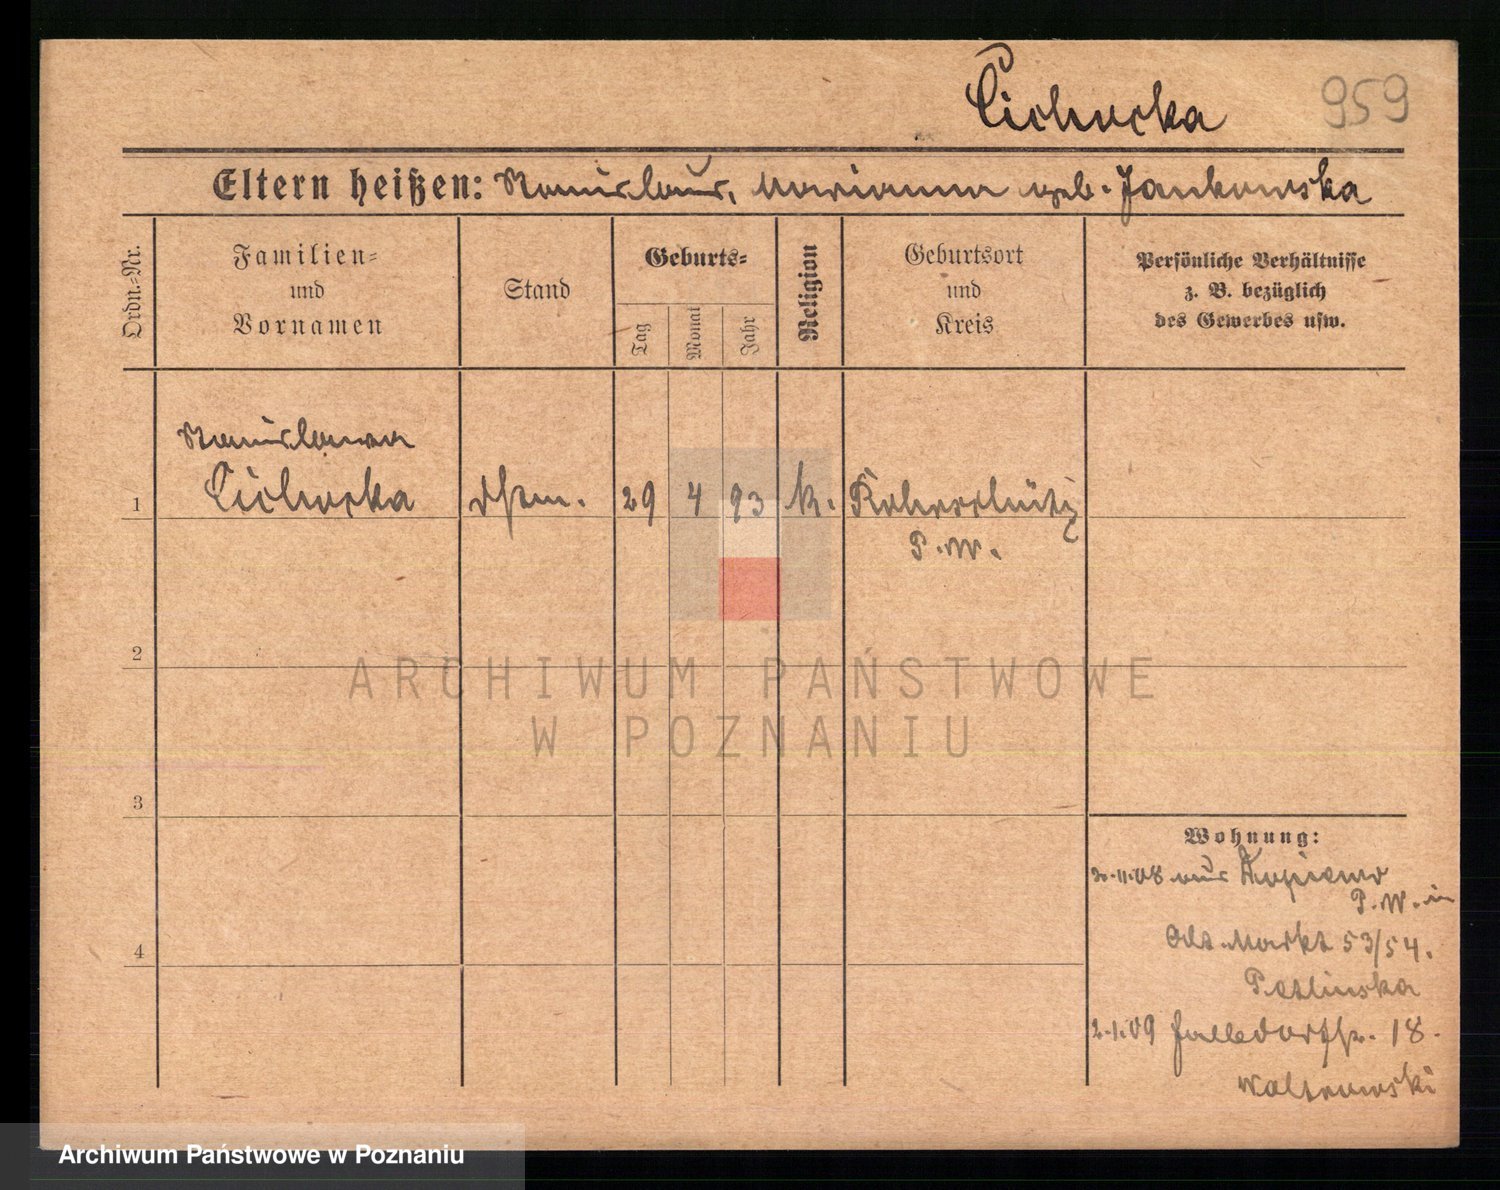 Cichocka
959
Eltern heißen: Stanislaus, Marianna geb. Jankowska
Ordn.-Nr.
Familien-
und
Vornamen
Stand
Geburts-
Tag
Monat
Jahr
Religion
Geburtsort
und
Kreis
Persönliche Verhältnisse
z. B. bezüglich
des Gewerbes usw.
Stanislawa
1 Cichocka 29 4 93 k.
P. W.
2
3
4
Wohnung:
aus
P. W. in
Alt. Markt 53/54.
2.1.09 18.
ARCHIWUM PAŃSTWOWE
W POZNANIU
Archiwum Państwowe w Poznaniu